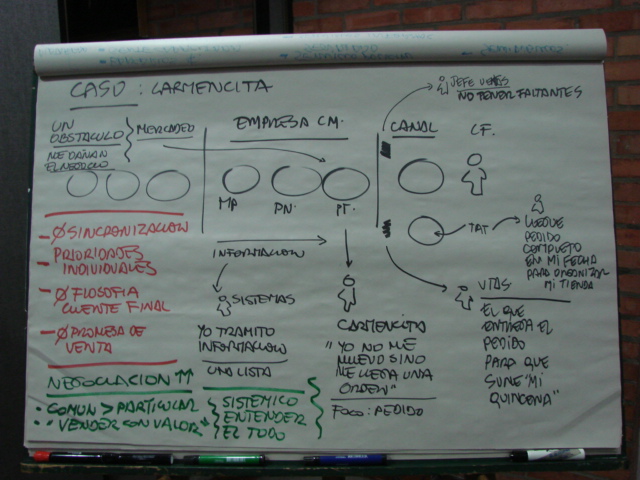 CASO : CARMENCITA
UN
OBSTACULO
ME DAÑAN
EL NEGOCIO
MERCADEO
EMPRESA CM.
MP
PN.
PT.
CANAL
C.F.
JEFE VENTAS
NO TENER FALTANTES
TAT
LLEGUE
PEDIDO
COMPLETO
EN MI FECHA
PARA ORGANIZAR
MI TIENDA
- Ø SINCRONIZACION
- PRIORIDADES
INDIVIDUALES
- Ø FILOSOFIA
CLIENTE FINAL
- Ø PROMESA DE
VENTA
INFORMACION
SISTEMAS
YO TRAMITO
INFORMACION
UNA LISTA
CARMENCITA
" YO NO ME
MUEVO SINO
ME LLEGA UNA
ORDEN"
FOCO: PEDIDO
VTAS
EL QUE
ENTREGA EL
PEDIDO
PARA QUE
SUME "MI
QUINCENA"
NEGOCIACION ↑↑
• COMUN > PARTICULAR
• "VENDER CON VALOR"
SISTEMICO
ENTENDER
EL TODO